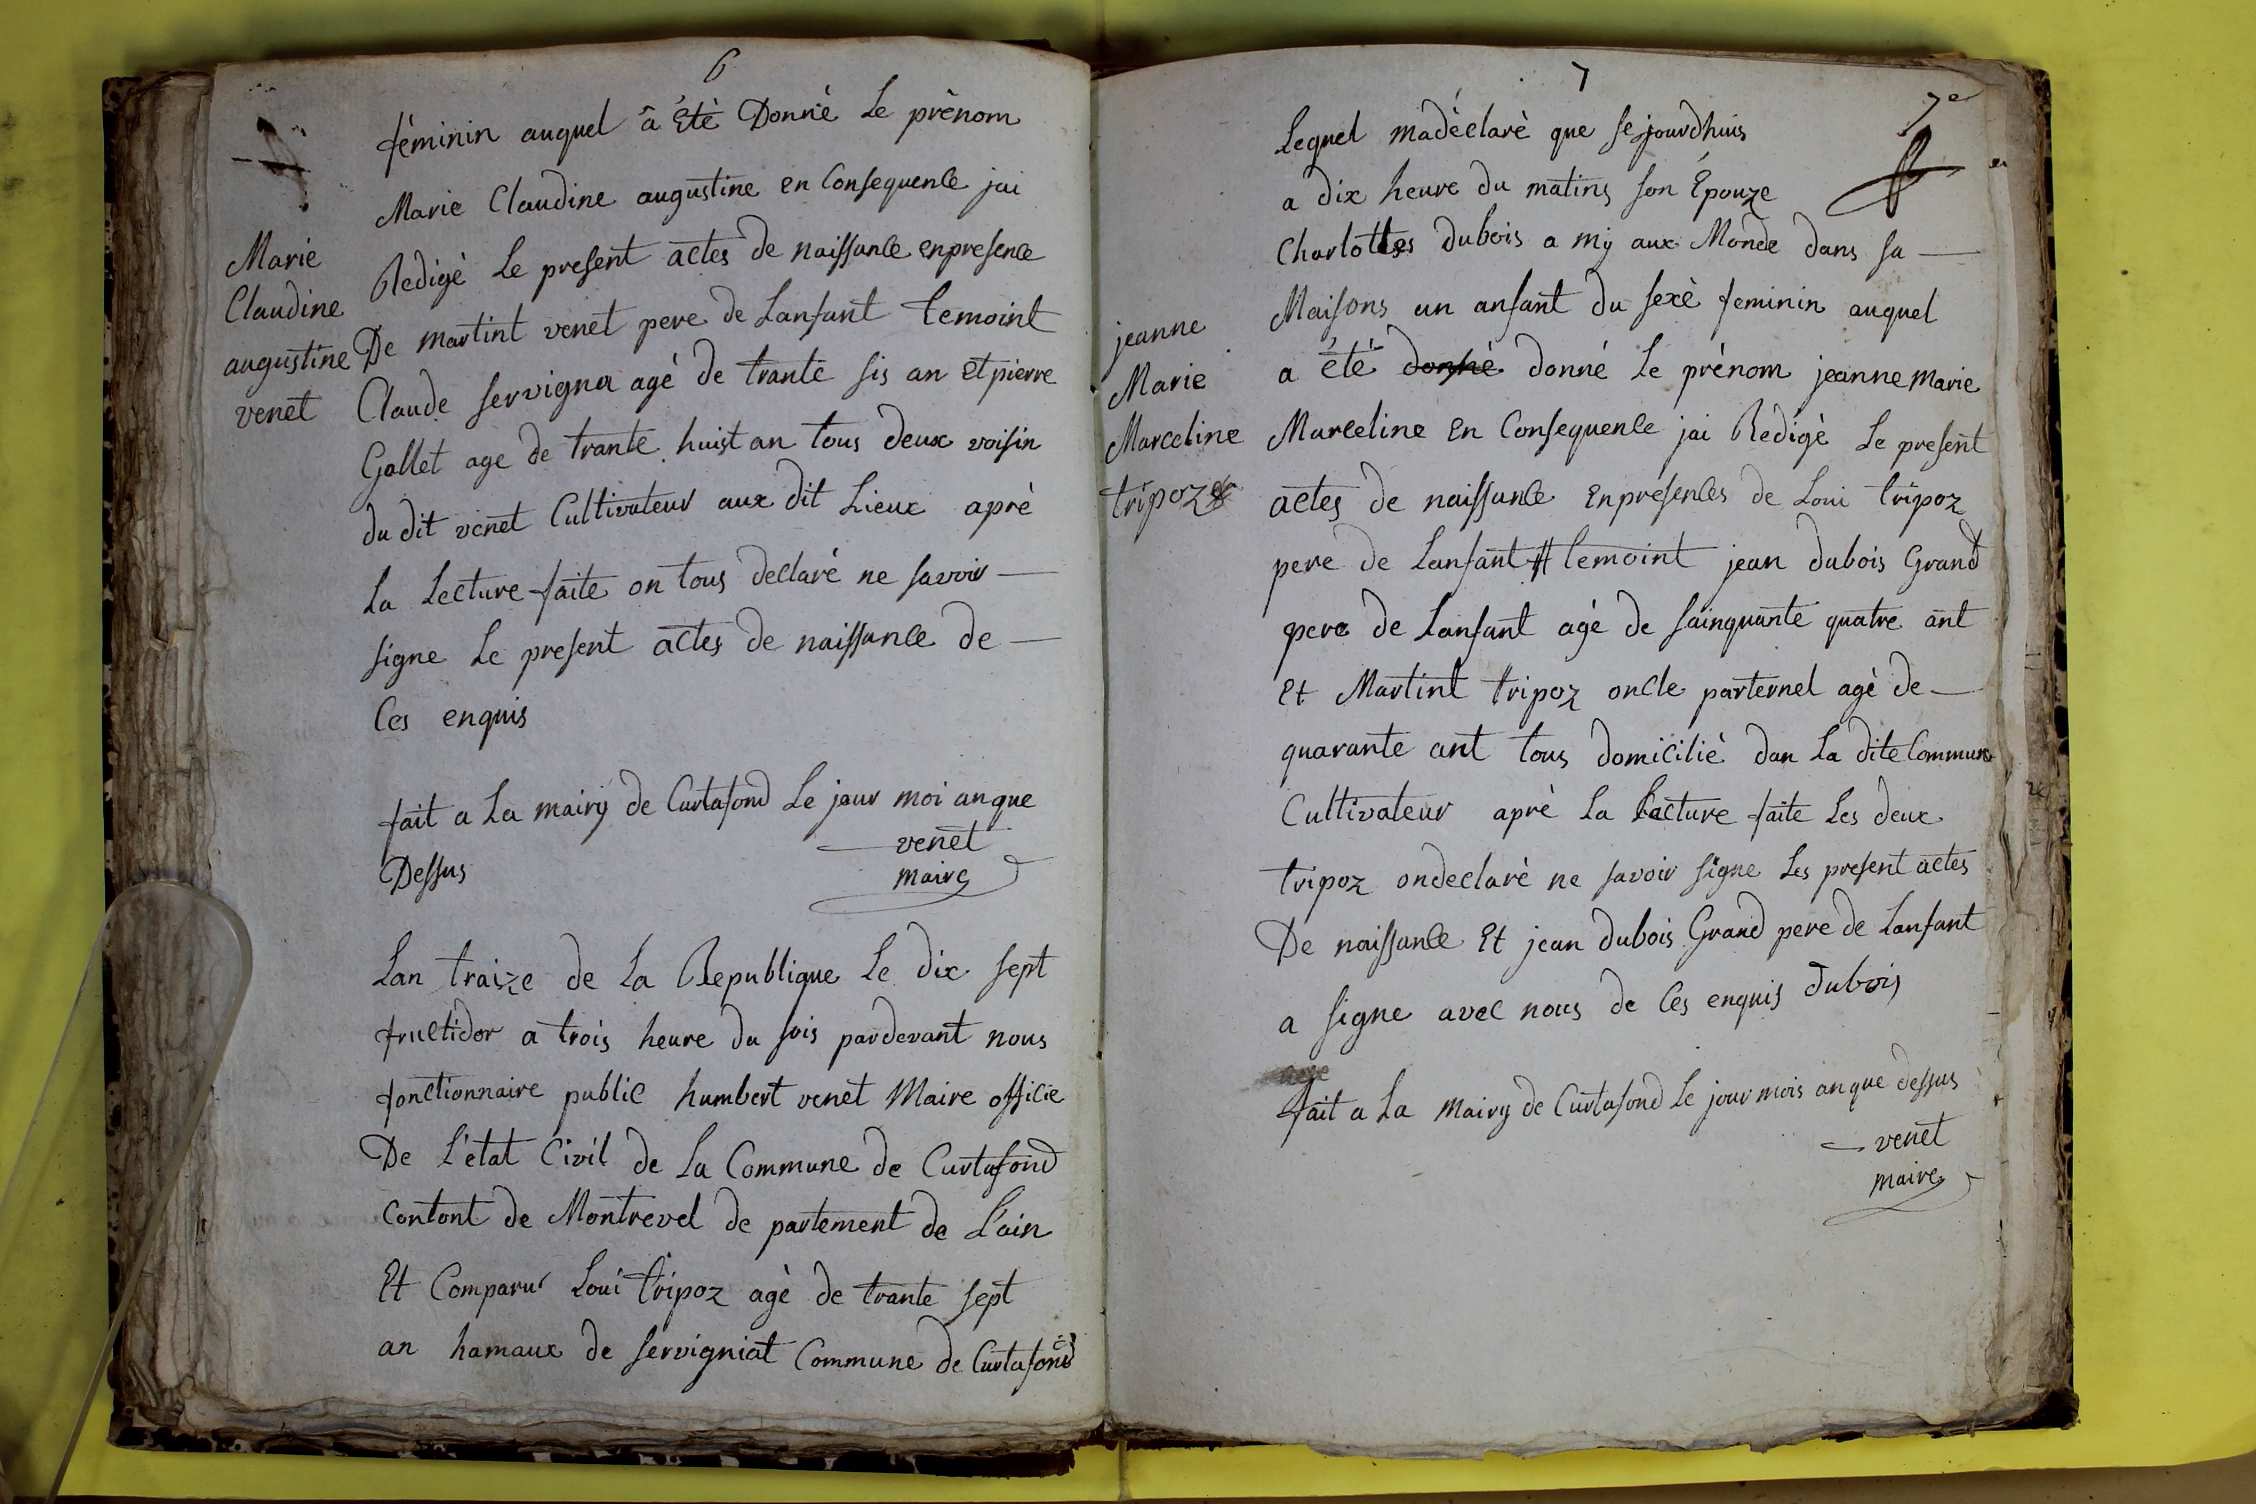 6
féminin auquel â Été Donné Le prènom
Marie Claudine augustine en Consequence jai
Marie
Claudine
augustine
venet
Redigé Le present actes de naissance enpresence
De martint venet pere de Lanfant temoint
Claude servigna agé de trante sis an Et pierre
Gallet age de trante huist an tous deux voisin
du dit venet Cultivateur aux dit Lieux aprè
La Lecture faite on tous declaré ne savoir —
signe Le present actes de naissance de —
Ces enquis
fait a La mairy de Curtafond Le jour moi an que
Dessus
venet
maire
Lan traize de La Republique Le dix sept
fructidor a trois heure du sois pardevant nous
fonctionnaire public humbert venet Maire officie
De L'état Civil de La Commune de Curtafond
Contont de Montrevel de partement de L'ain
Et Comparu Loui tripoz agè de trante sept
an hamaux de servigniat Commune de Curtafond
7
7e
Lequel madéclaré que se jourdhuis
a dix heure du matins son Épouze
Charlottes dubois a mÿ aux Monde dans sa —
Maisons un anfant du sexè feminin auquel
a été donné donné Le prénom jeanne marie
jeanne
Marie
Marceline
tripoz
Marceline En Consequence jai Redigè Le present
actes de naissance Enpresences de Loui tripoz
pere de Lanfant # temoint jean dubois Grand
pere de Lanfant agè de sainquante quatre ant
Et Martint tripoz oncle parternel agè de —
quarante ant tous domicilié dan La dite Commune
Cultivateur aprè La Lacture faite Les deux
tripoz ondeclaré ne savoir signe Les present actes
De naissance Et jean dubois Grand pere de Lanfant
a signe avec nous de Ces enquis dubois
fait a La mairy de Curtafond Le jour mois an que dessus
venet
maire